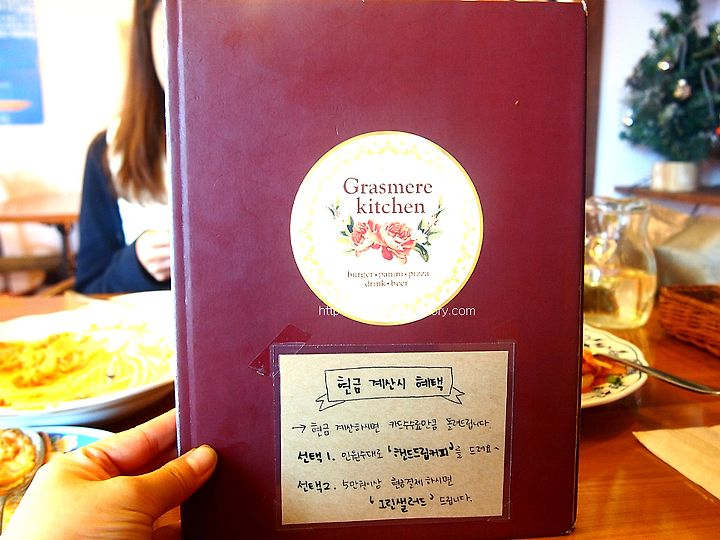 Grasmere
kitchen
burger • panini • pizza
drink • beer
현금 계산시 혜택
→ 현금 계산하시면 카드수수료만큼 돌려드립니다.
선택1. 인원수대로 '핸드드립커피'을 드려요~
선택2. 5만원이상 현금결제 하시면
'그린샐러드' 드립니다.